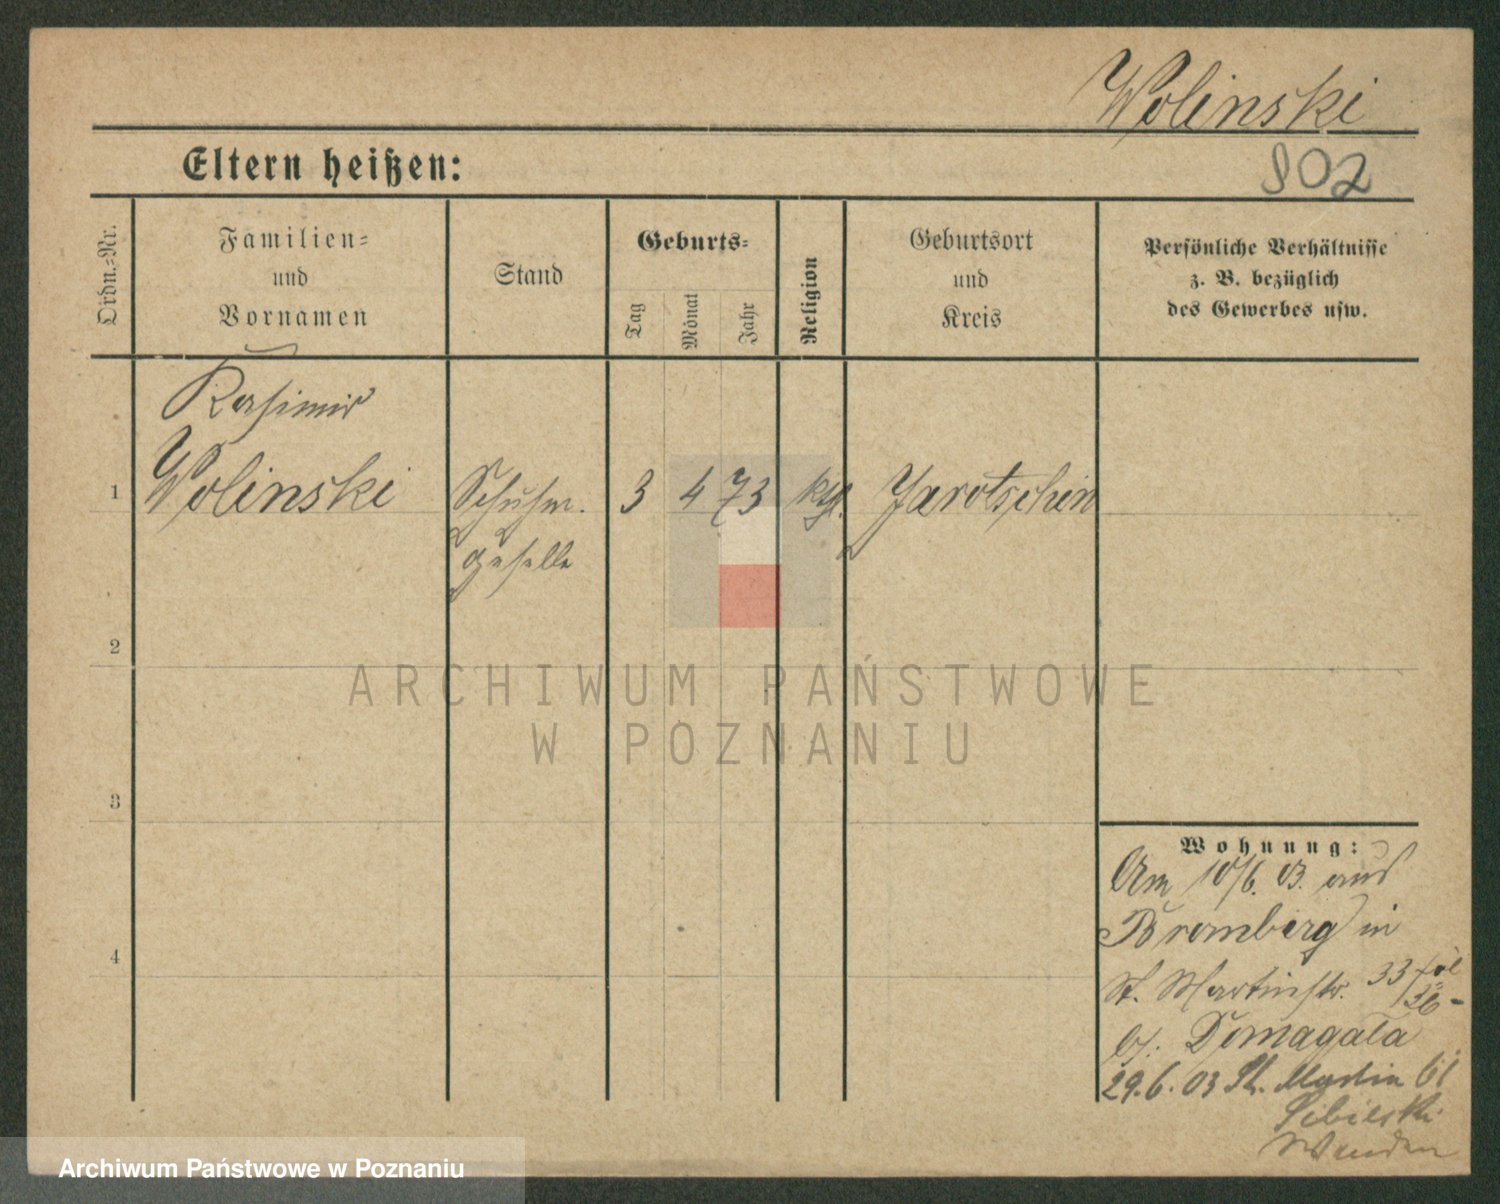 Wolinski
Eltern heißen:
902
Ordn.-Nr.
Familien-
und
Vornamen
Stand
Geburts-
Tag
Monat
Jahr
Religion
Geburtsort
und
Kreis
Persönliche Verhältnisse
z. B. bezüglich
des Gewerbes usw.
Kasimir
1 Wolinski Schuhm. 3 4 73 kth. Jarotschin
geselle
2
ARCHIWUM PAŃSTWOWE
W POZNANIU
3
Wohnung:
Am 10/6. 03. aus
Bromberg in
4
St. Martinstr. 33
b/. Domagala
29.6.03 St. Martin 61
Sibilski
Archiwum Państwowe w Poznaniu